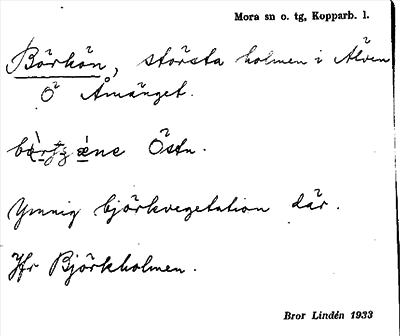 Mora sn o. tg, Kopparb. l.
Börkön, största holmen i Älven
Ö Åmänget.
Östn.
Ymnig björkvegetation där.
Jfr Björkholmen.
Bror Lindén 1933